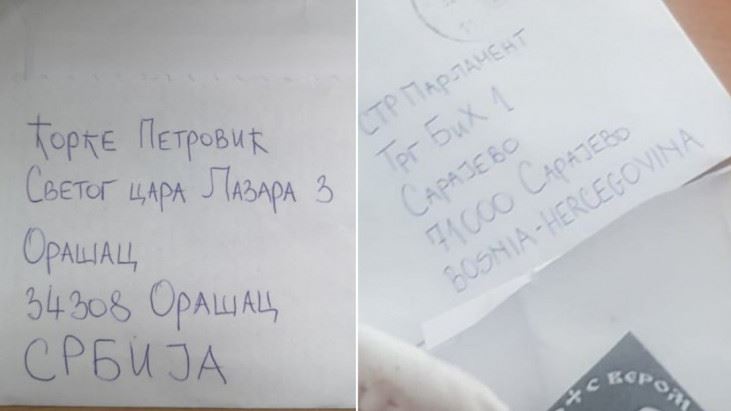 Ђорђе Петровић
Светог цара Лазара 3
Орашац
34308 Орашац
СРБИЈА
СТР ПАРЛАМЕНТ
ТРГ БиХ 1
САРАЈЕВО
71000 САРАЈЕВО
BOSNIA-HERCEGOVINA
С ВЕРОМ